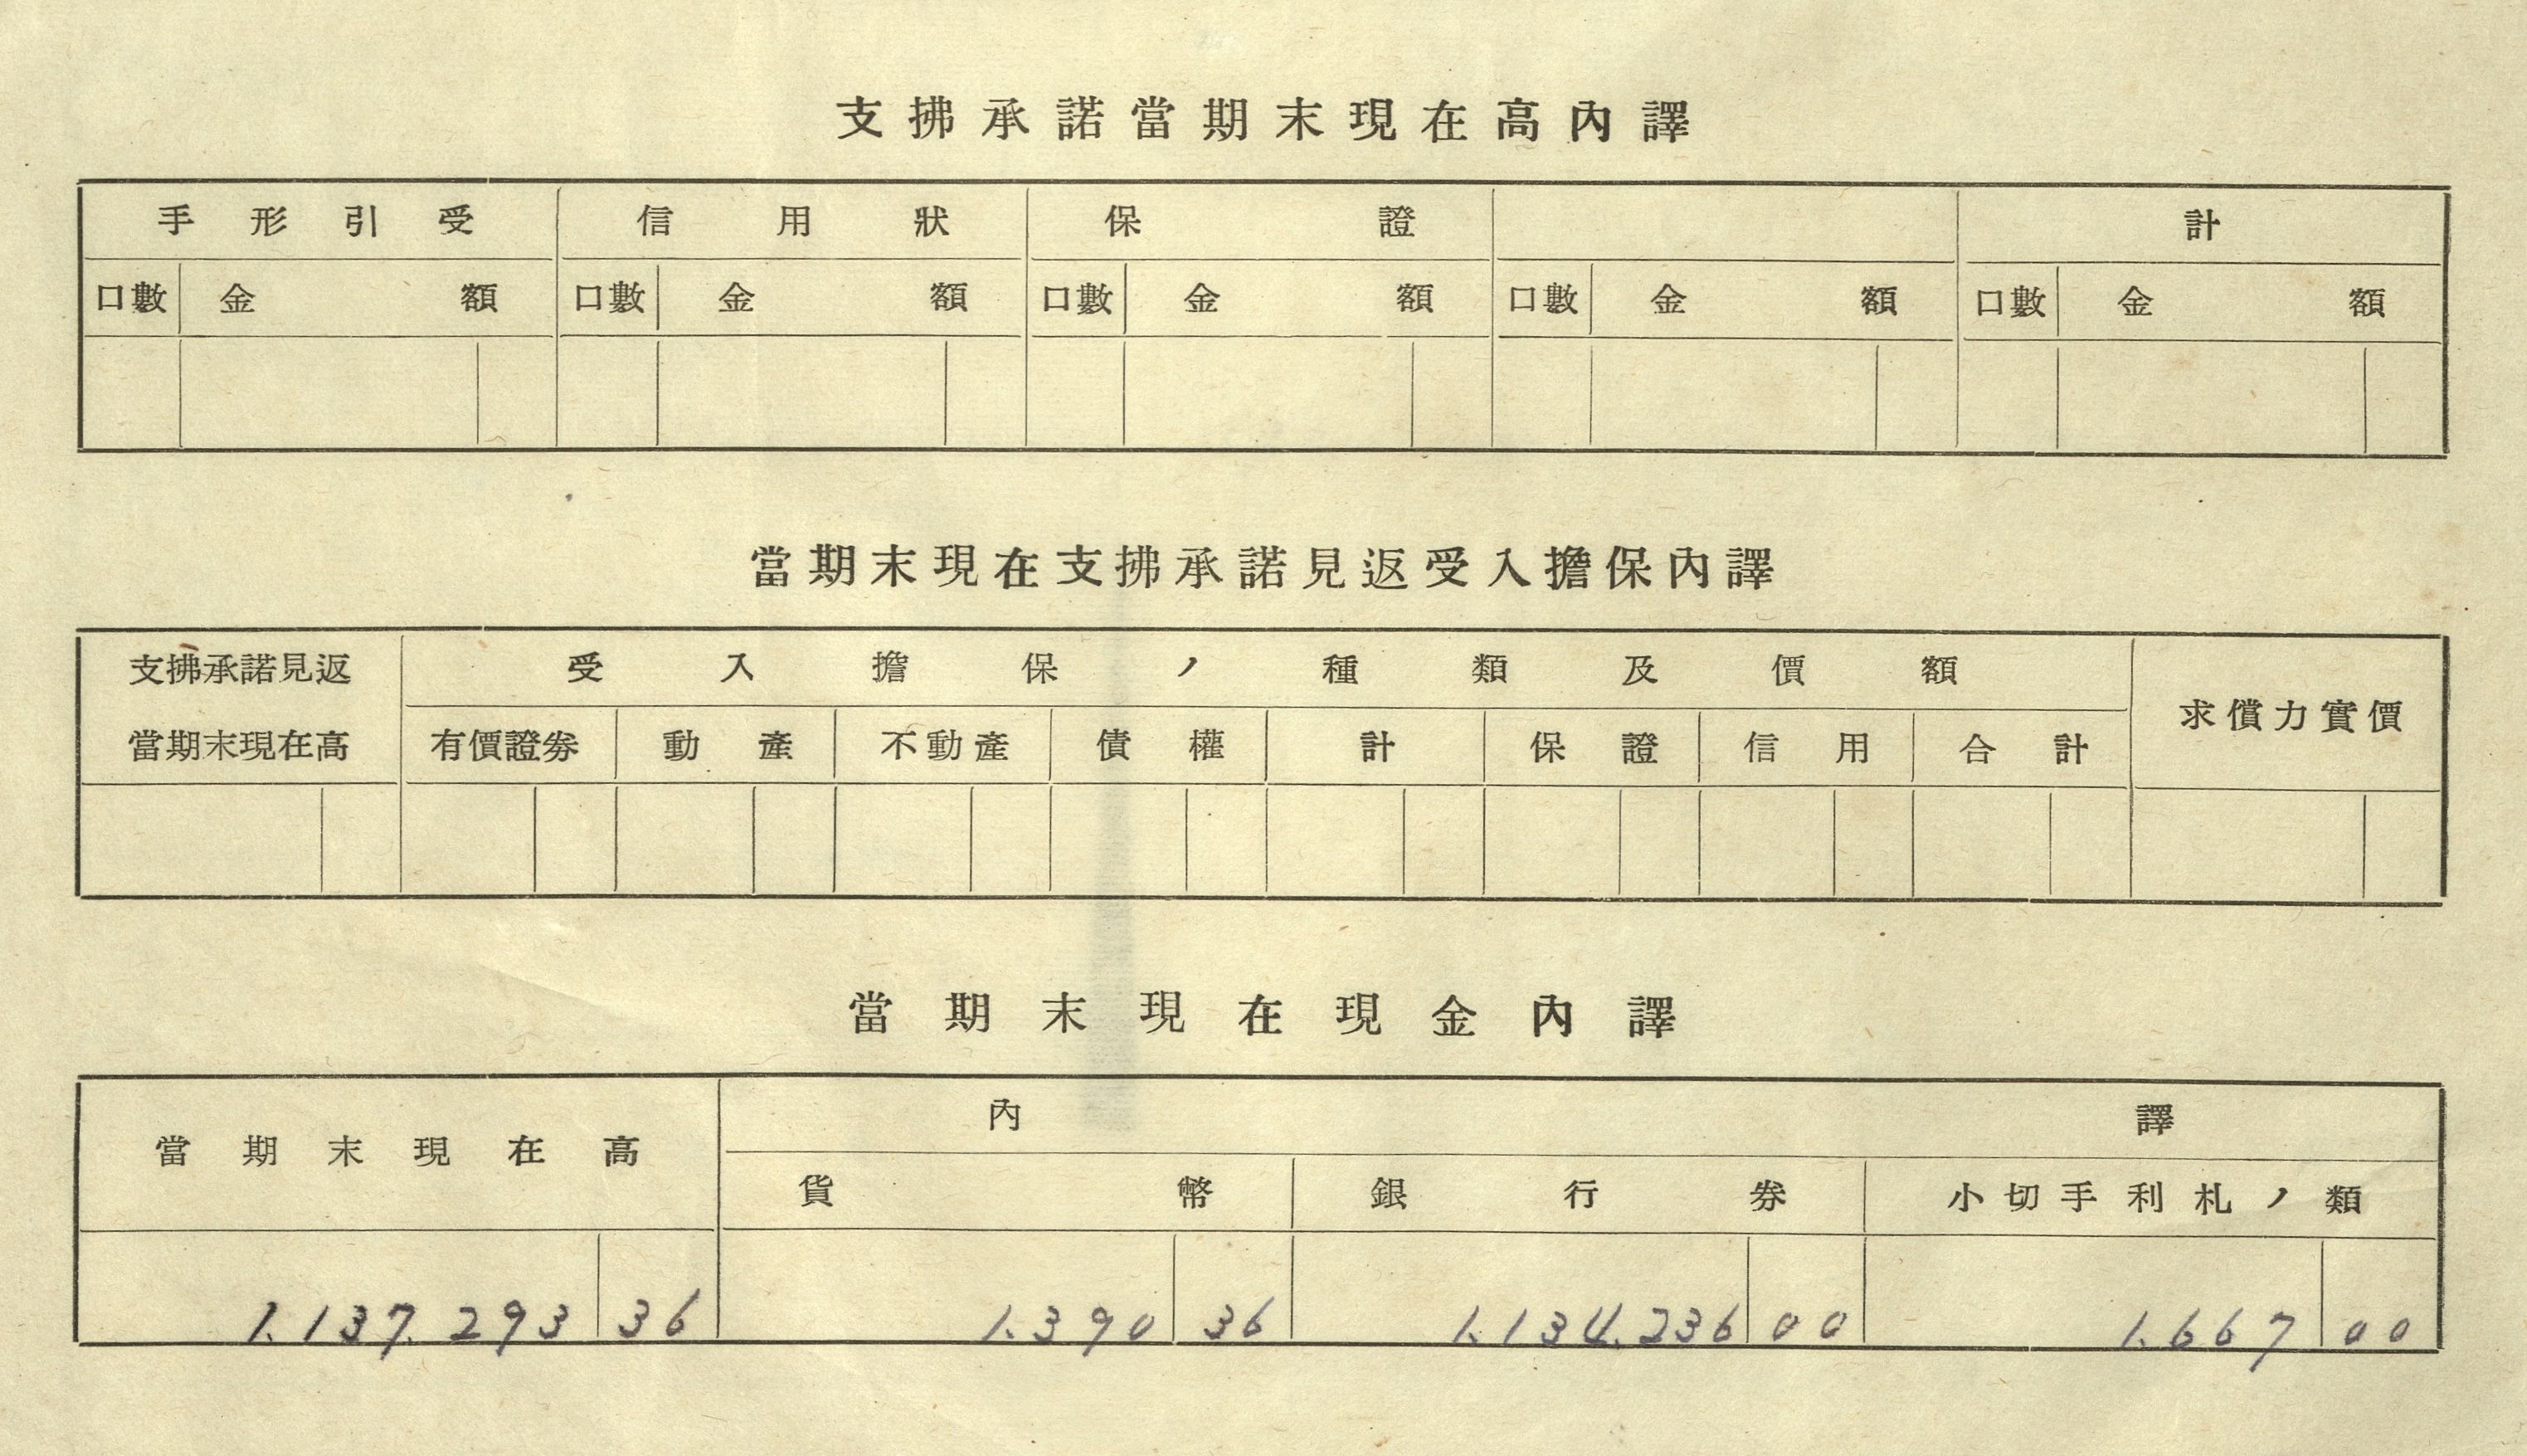 支拂承諾當期末現在高內譯
手形引受 信用狀 保證 計
口數 金額 口數 金額 口數 金額 口數 金額 口數 金額
當期末現在支拂承諾見返受入擔保內譯
支拂承諾見返 受入擔保ノ種類及價額
當期末現在高 有價證券 動產 不動產 債權 計 保證 信用 合計 求償力實價
當期末現在現金內譯
當期末現在高 內譯
貨幣 銀行券 小切手利札ノ類
1.137.293 36 1.390 36 1.134.236 00 1.667 00